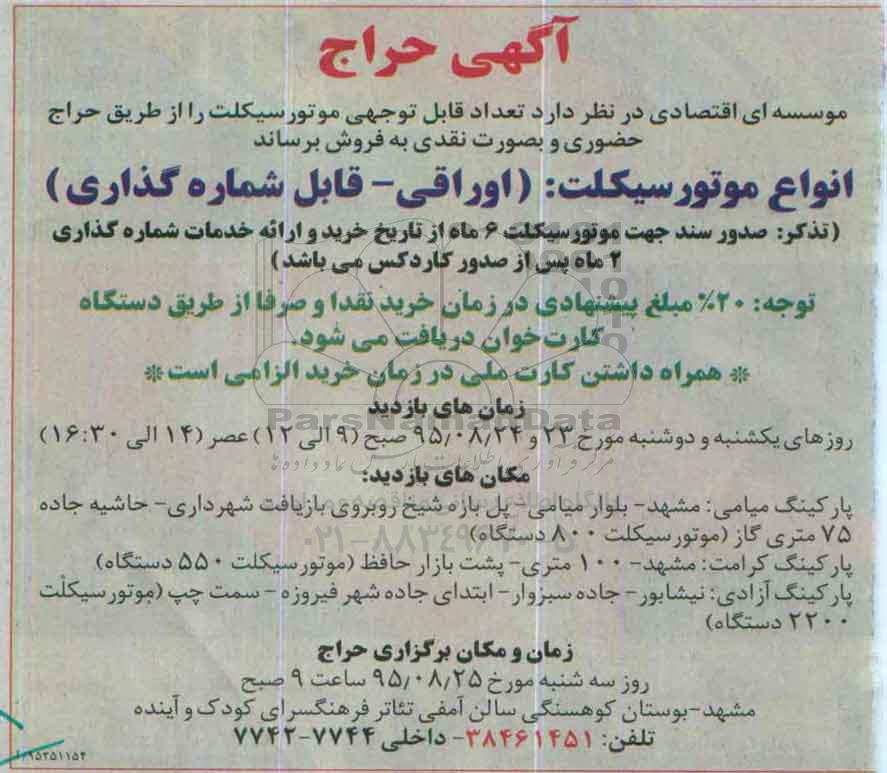 آگهی حراج
موسسه ای اقتصادی در نظر دارد تعداد قابل توجهی موتورسیکلت را از طریق حراج
حضوری و بصورت نقدی به فروش برساند
انواع موتورسیکلت: (اوراقی- قابل شماره گذاری)
(تذکر: صدور سند جهت موتورسیکلت ۶ ماه از تاریخ خرید و ارائه خدمات شماره گذاری
۲ ماه پس از صدور کاردکس می باشد)
توجه: ۲۰٪ مبلغ پیشنهادی در زمان خرید نقدا و صرفا از طریق دستگاه
کارت خوان دریافت می شود.
* همراه داشتن کارت ملی در زمان خرید الزامی است *
زمان های بازدید
ParsNamadData
روزهای یکشنبه و دوشنبه مورخ ۲۳ و ۹۵/۰۸/۲۴ صبح (۹ الی ۱۲) عصر (۱۴ الی ۱۶:۳۰)
مکان های بازدید:
پارکینگ میامی: مشهد- بلوار میامی- پل بازه شیخ روبروی بازیافت شهرداری- حاشیه جاده
۷۵ متری گاز (موتورسیکلت ۸۰۰ دستگاه)
پارکینگ کرامت: مشهد- ۱۰۰ متری- پشت بازار حافظ (موتورسیکلت ۵۵۰ دستگاه)
پارکینگ آزادی: نیشابور- جاده سبزوار- ابتدای جاده شهر فیروزه- سمت چپ (موتورسیکلت
۲۲۰۰ دستگاه)
زمان و مکان برگزاری حراج
روز سه شنبه مورخ ۹۵/۰۸/۲۵ ساعت ۹ صبح
مشهد-بوستان کوهسنگی سالن آمفی تئاتر فرهنگسرای کودک و آینده
تلفن: ۳۸۴۶۱۴۵۱- داخلی ۷۷۴۴-۷۷۴۲